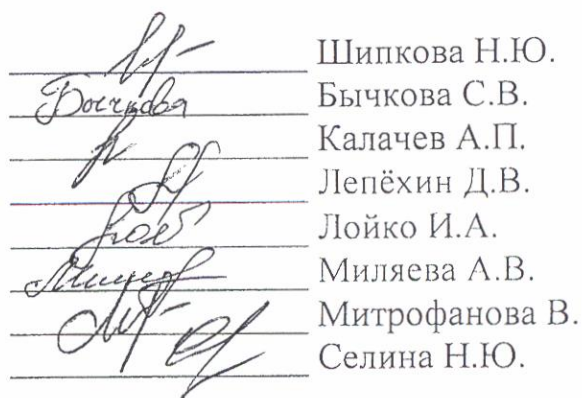 Шипкова Н.Ю.
Бычкова Бычкова С.В.
Калачев А.П.
Лепёхин Д.В.
Лойко И.А.
Миляева А.В.
Митрофанова В.
Селина Н.Ю.